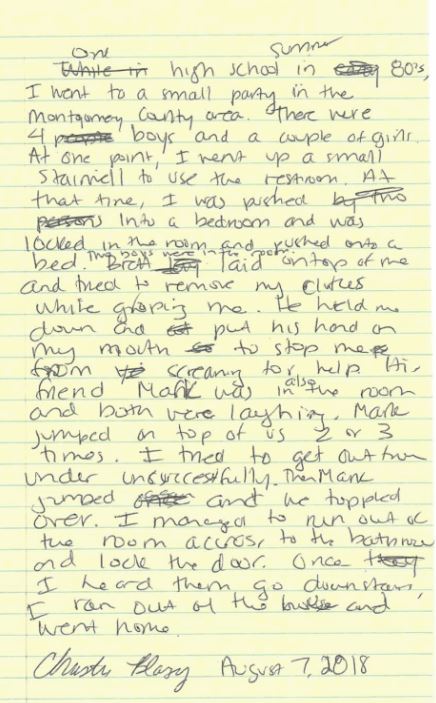 One summer
While in high school in early 80's,
I went to a small party in the
Montgomery County area. There were
4 people boys and a couple of girls.
At one point, I went up a small
stairwell to use the restroom. At
that time, I was pushed by two
persons into a bedroom and was
locked in the room and pushed onto a
Two boys were in the room.
bed. Brett laid on top of me
and tried to remove my clothes
while groping me. He held me
down and put his hand on
my mouth to stop me
from screaming for help. His
also
friend Mark was in the room
and both were laughing. Mark
jumped on top of us 2 or 3
times. I tried to get out from
under unsuccessfully. Then Mark
jumped and we toppled
over. I managed to run out of
the room across to the bathroom
and lock the door. Once they
I heard them go downstairs,
I ran out of the house and
went home.
August 7, 2018